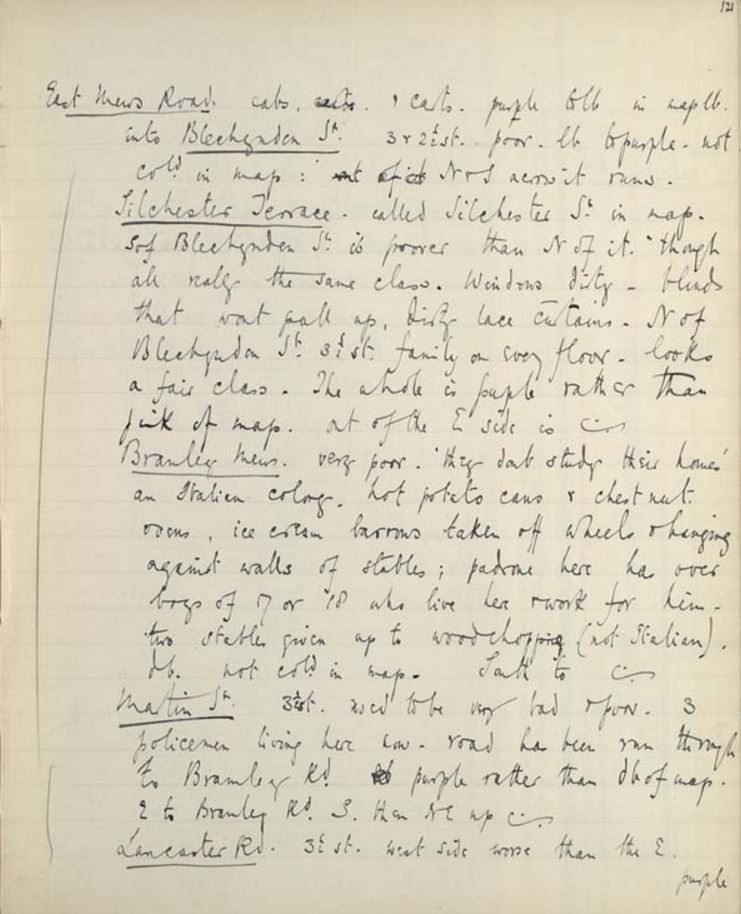 121
East Mews Road. cabs, carts. purple to lb in map lb.
into Blechynden St. 3 & 2½ st. poor. lb to purple - not
cold in map: N & S across it runs.
Silchester Terrace - called Silchester St. in map.
S of Blechynden St. is poorer than N of it. though
all really the same class. Windows dirty - blinds
that wont pull up, dirty lace curtains - N of
Blechynden St. 3½ st. family on every floor - looks
a fair class - The whole is purple rather than
pink of map. out of the E side is
Bramley Mews. very poor. 'they dont study their homes'
an Italian colony. hot potato cans & chestnut
ovens, ice cream barrows taken off wheels & hanging
against walls of stables; padrone here has over
boys of 17 or 18 who live here & work for him -
two stables given up to woodchopping (not Italian).
db. not cold in map. South to
Martin St. 3½ st. used to be very bad & poor. 3
policemen living here now - road has been run through
to Bramley Rd purple rather than db of map.
E to Bramley Rd. S. then NE up
Lancaster Rd. 3½ st. west side worse than the E.
purple